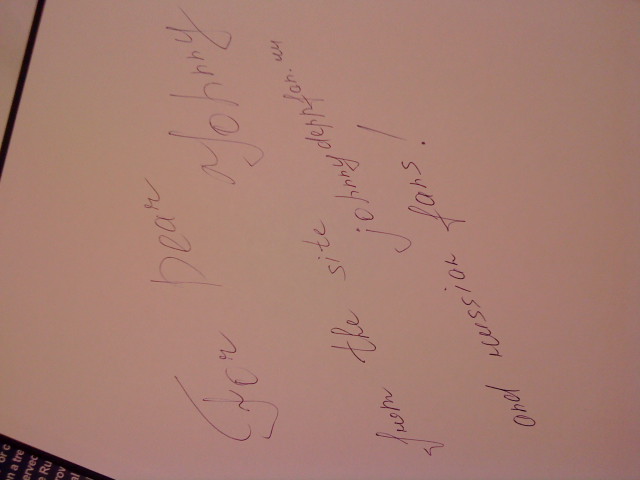 For Dear Johnny
from the site johnnydeppfan.ru
and russian fans!
or c
n a tre
ervec
e Ru
rov
al